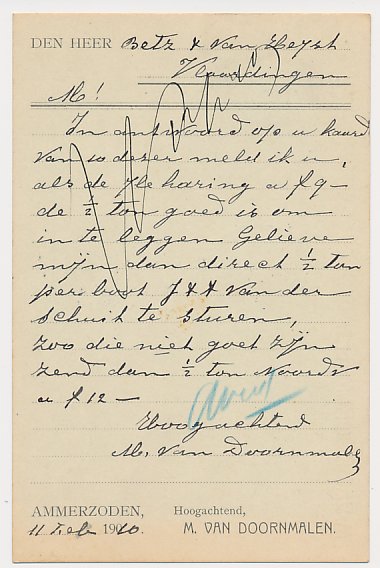 DEN HEER Betz & van Heyst
Vlaardingen
M!
In antwoord op u kaard
van 10 dezer meld ik u,
als de Ile haring a f 9-
de ½ ton goed is om
in te leggen Gelieve
mijn dan direct ½ ton
per boot J & A van der
Schuit te sturen,
zoo die niet goet zijn
zend dan ½ ton Noords
a f 12-
Hoogachtend
M. van Doornmalen
AMMERZODEN, Hoogachtend,
11 Feb 1910. M. VAN DOORNMALEN.